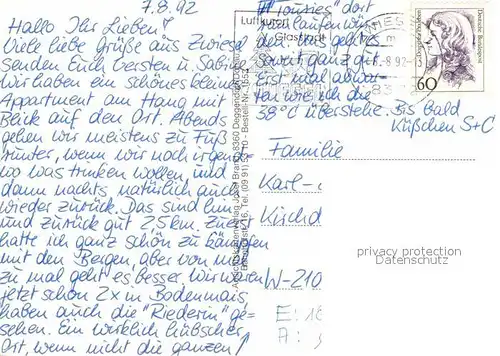 7.8.92
Hallo Ihr Lieben!
Viele liebe Grüße aus Zwiesel
senden Euch Kersten u. Sabine
Wir haben ein schönes kleines
Appartment am Hang mit
Blick auf den Ort. Abends
gehen wir meistens zu Fuß
runter, wenn wir noch irgend-
wo was trinken wollen und
dann nachts natürlich auch
wieder zurück. Das sind hin
und zurück gut 2,5 km. Zuerst
hatte ich ganz schön zu kämpfen
mit den Bergen, aber von mal
zu mal geht es besser. Wir waren
jetzt schon 2x in Bodenmais,
haben auch die "Riederin" ge-
sehen. Ein wirklich hübscher
Ort, wenn nicht die ganzen
"Tourries" dort
rumlaufen wür-
den. Uns geht es
soweit ganz gut.
Erst mal abwar-
ten wie ich die
38°C überstehe. Bis bald
Küßchen S+C
Familie
Karl-
Kirchd
W-210
Luftkurort
Glasstadt
-8.92-
83
Deutsche Bundespost
60
privacy protection
Datenschutz